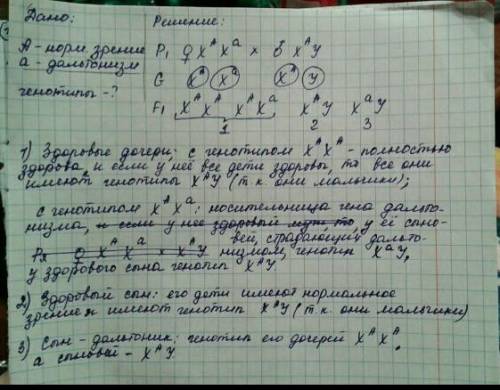 Дано:
А - норм. зрение
а - дальтонизм
генотипы - ?
Решение:
P₁ ♀ XᴬXᵃ × ♂ XᴬY
G Xᴬ Xᵃ Xᴬ Y
F₁ XᴬXᴬ XᴬXᵃ XᴬY XᵃY
1 2 3
1) Здоровые дочери: с генотипом XᴬXᴬ - полностью
здорова, и если у неё все дети здоровы, то все они
имеют генотипы XᴬY (т.к. они мальчики);
с генотипом XᴬXᵃ: носительница гена дальто-
низма, и если у нее здоровый муж, то у её сыно-
вей, страдающий дальто-
P₂ ♀ Xᴬ Xᵃ × XᴬY низмом, генотип XᵃY,
у здорового сына генотип XᴬY
2) Здоровый сын: его дети имеют нормальное
зрение и имеют генотип XᴬY (т.к. они мальчики)
3) Сын - дальтоник: генотип его дочерей XᴬXᴬ,
а сыновей - XᴬY